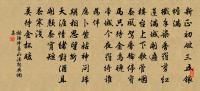 新正初破三五銀
蟾滿纖手染香羅剪紅
蓮滿城開遍樓
臺上下歌管咽春
風駕香輪停寶馬
只待金烏晚帝
城今夜羅綺誰為伴應
卜紫姑神問歸
期相思望斷
天涯情緒對酒且
開顏春宵短
春寒淺
莫待金杯暖